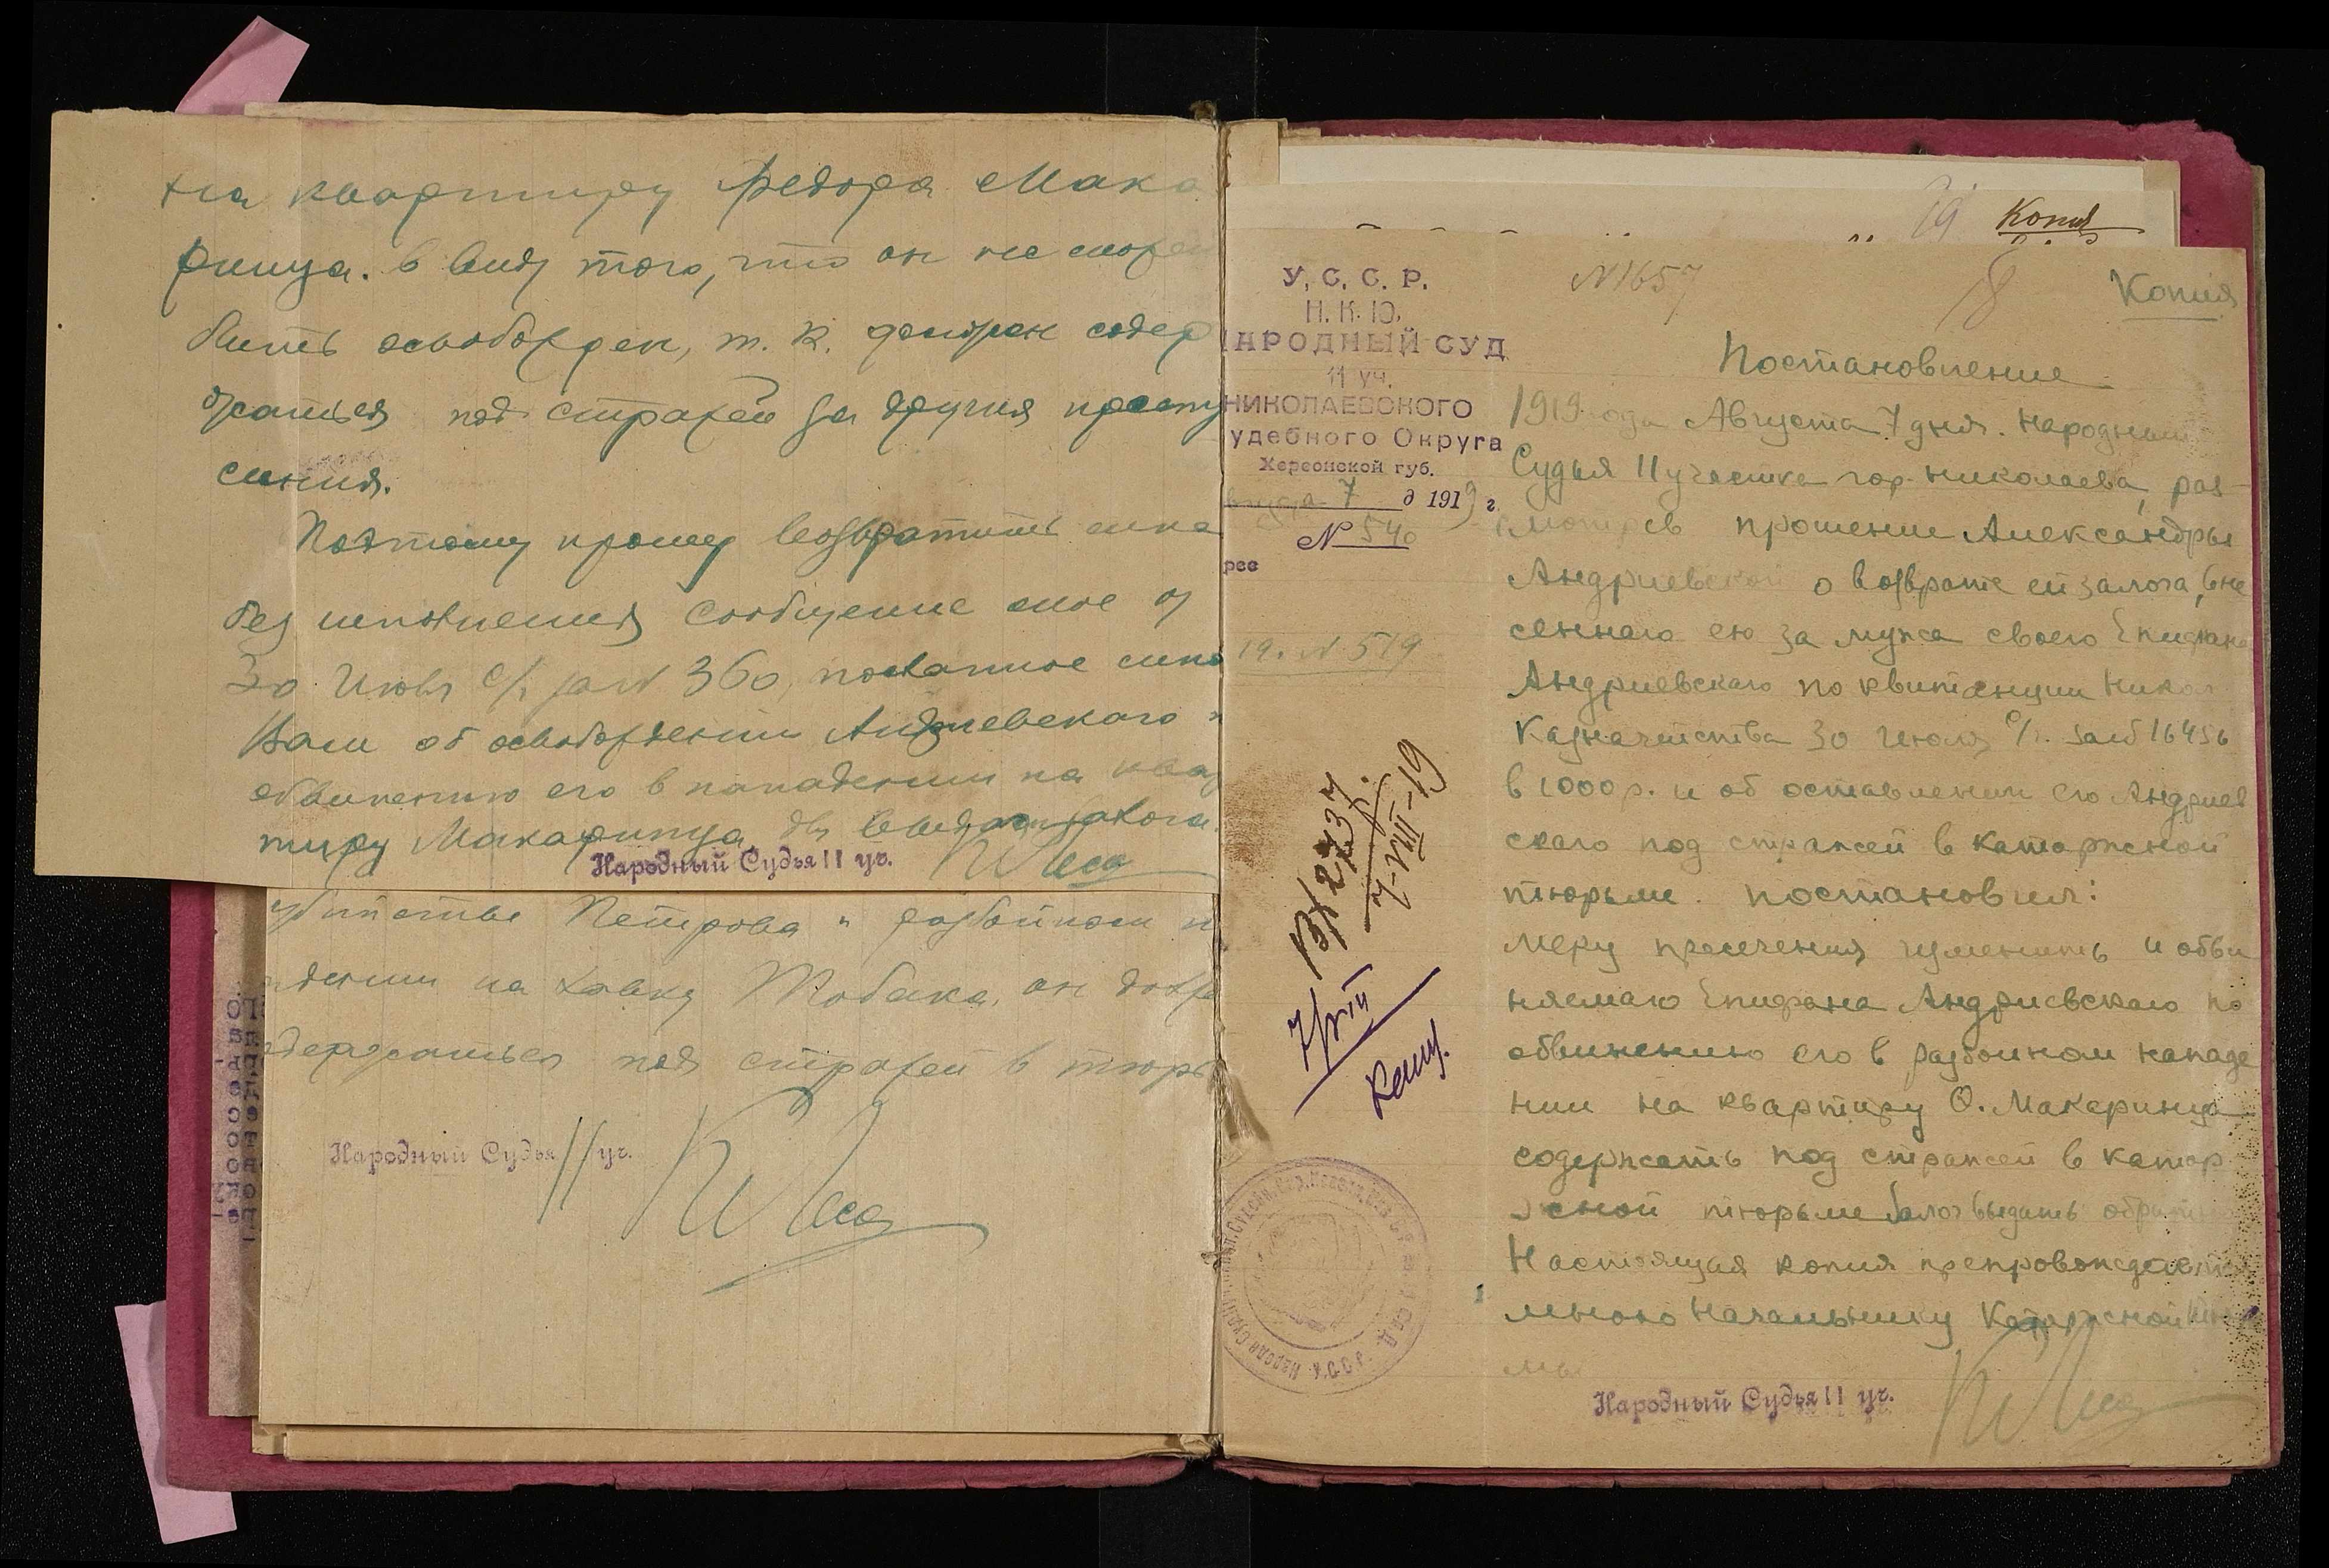 на квартиру Федора Мака
ринца. В виду того, что он не может
быть освобожден, т. к. должен содер
жаться под стражей за другия престу
пления.
Поэтому прошу возвратить мне
без исполнения сообщение мое от
30 Июля с/г за № 360, посланное мною
Вам об освобождении Андриевскаго п
обвинению его в нападении на квар
тиру Макаринца
Народный Судья 11 уч.
убийстве Петрова и разбойном н
адении на лавку Тобака, он долже
одержаться под стражей в тюрь
Народный Судья 11 уч.
19 Копия
У. С. С. Р.
Н. К. Ю.
НАРОДНЫЙ СУД
11 уч.
НИКОЛАЕВСКОГО
удебного Округа
Херсонской губ.
Августа 7 д 1919 г.
№ 540
рес
19. № 519
13/2737
7-VIII-19
7/VIII
№ 1657
18
Копия
Постановление
1919 года Августа 7 дня. Народный
Судья 11 участка гор. Николаева, рас-
смотрев прошение Александры
Андриевской о возврате ей залога, вне
сеннаго ею за мужа своего Епифана
Андриевскаго по квитанции Никол
Казначейства 30 Июля с/г. за № 16456
в 1000 р. и об оставлении его Андриев
скаго под стражей в каторжной
тюрьме. постановил:
меру пресечения изменить и обви
няемаго Епифана Андриевскаго по
обвинению его в разбойном нападе
нии на квартиру Ф. Макаринца
содержать под стражей в катор
жной тюрьме Залог выдать обратно
Настоящая копия препровождается
мною Начальнику Каторжной Тюрь
мы
Народный Судья 11 уч.